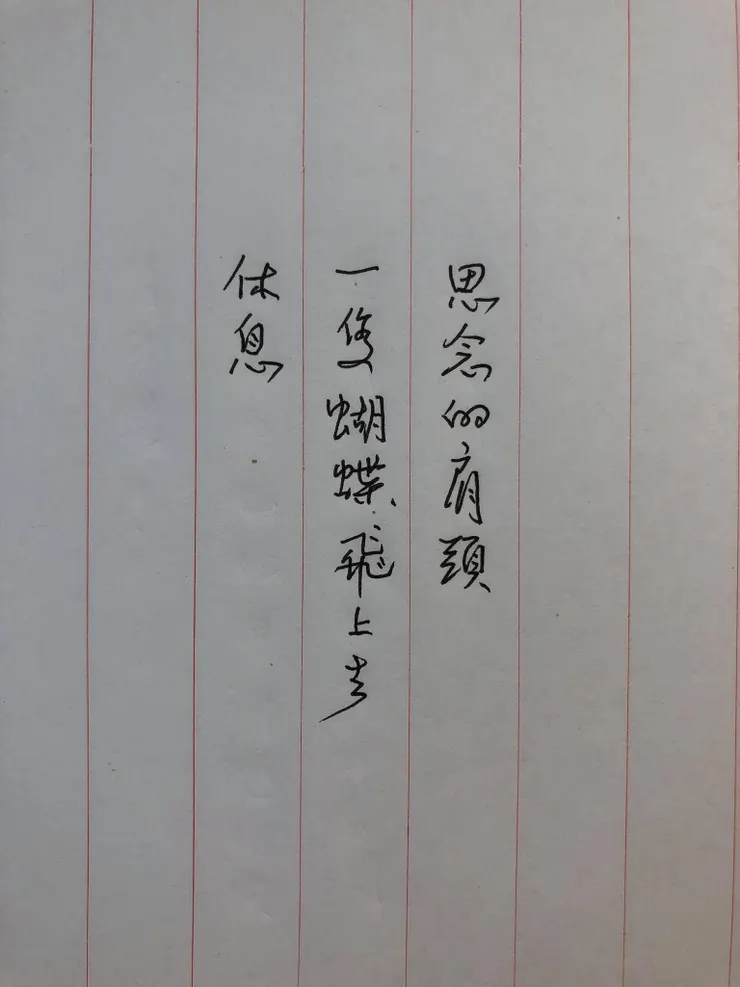 思念的肩頭
一隻蝴蝶飛上去
休息